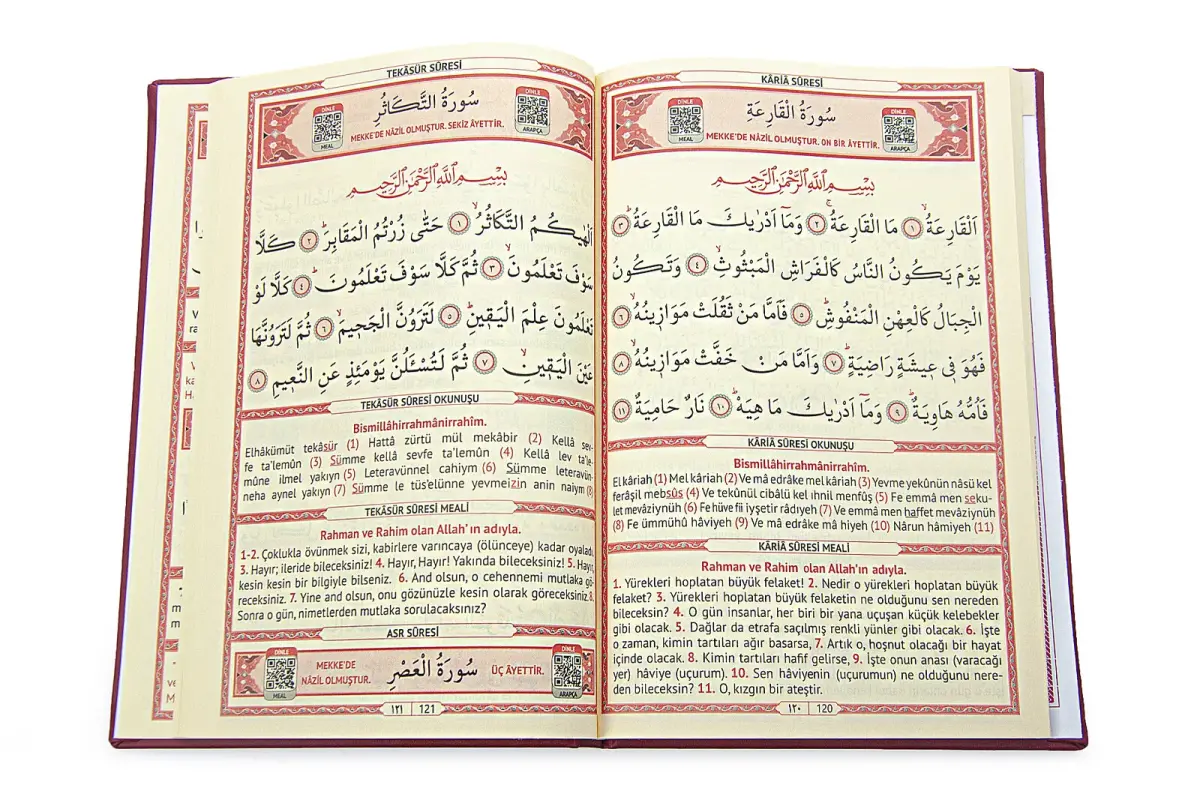 KÂRİÂ SÛRESİ
DİNLE
MEAL
سُورَةُ الْقَارِعَةِ
MEKKE'DE NÂZİL OLMUŞTUR. ON BİR ÂYETTİR.
DİNLE
ARAPÇA
بِسْمِ اللّٰهِ الرَّحْمٰنِ الرَّحِيمِ
اَلْقَارِعَةُۙ ﴿١﴾ مَا الْقَارِعَةُۚ ﴿٢﴾ وَمَٓا اَدْرٰيكَ مَا الْقَارِعَةُۜ ﴿٣﴾
يَوْمَ يَكُونُ النَّاسُ كَالْفَرَاشِ الْمَبْثُوثِۙ ﴿٤﴾ وَتَكُونُ
الْجِبَالُ كَالْعِهْنِ الْمَنْفُوشِۜ ﴿٥﴾ فَاَمَّا مَنْ ثَقُلَتْ مَوَازٖينُهُۙ ﴿٦﴾
فَهُوَ فٖي عٖيشَةٍ رَاضِيَةٍۜ ﴿٧﴾ وَاَمَّا مَنْ خَفَّتْ مَوَازٖينُهُۙ ﴿٨﴾
فَاُمُّهُ هَاوِيَةٌۜ ﴿٩﴾ وَمَٓا اَدْرٰيكَ مَا هِيَهْۜ ﴿١٠﴾ نَارٌ حَامِيَةٌ ﴿١١﴾
KÂRİÂ SÛRESİ OKUNUŞU
Bismillâhirrahmânirrahîm.
El kâriah (1) Mel kâriah (2) Ve mâ edrake mel kâriah (3) Yevme yekûnün nâsü kel
ferâşil mebsûs (4) Ve tekûnül cibâlü kel ıhnil menfûş (5) Fe emmâ men seku-
let mevâziynüh (6) Fe hüve fii ıyşetir râdıyeh (7) Ve emmâ men haffet mevâziynüh
(8) Fe ümmühû hâviyeh (9) Ve mâ edrake mâ hiyeh (10) Nârun hâmiyeh (11)
KÂRİÂ SÛRESİ MEALİ
Rahman ve Rahim olan Allah'ın adıyla.
1. Yürekleri hoplatan büyük felaket! 2. Nedir o yürekleri hoplatan büyük
felaket? 3. Yürekleri hoplatan büyük felaketin ne olduğunu sen nereden
bileceksin? 4. O gün insanlar, her biri bir yana uçuşan küçük kelebekler
gibi olacak. 5. Dağlar da etrafa saçılmış renkli yünler gibi olacak. 6. İşte
o zaman, kimin tartıları ağır basarsa, 7. Artık o, hoşnut olacağı bir hayat
içinde olacak. 8. Kimin tartıları hafif gelirse, 9. İşte onun anası (varacağı
yer) hâviye (uçurum). 10. Sen hâviyenin (uçurumun) ne olduğunu nere-
den bileceksin? 11. O, kızgın bir ateştir.
١٢٠ 120
TEKÂSÜR SÛRESİ
DİNLE
MEAL
سُورَةُ التَّكَاثُرِ
MEKKE'DE NÂZİL OLMUŞTUR. SEKİZ ÂYETTİR.
DİNLE
ARAPÇA
بِسْمِ اللّٰهِ الرَّحْمٰنِ الرَّحِيمِ
اَلْهٰيكُمُ التَّكَاثُرُۙ ﴿١﴾ حَتّٰى زُرْتُمُ الْمَقَابِرَۜ ﴿٢﴾ كَلَّا
سَوْفَ تَعْلَمُونَۙ ﴿٣﴾ ثُمَّ كَلَّا سَوْفَ تَعْلَمُونَۜ ﴿٤﴾ كَلَّا لَوْ
تَعْلَمُونَ عِلْمَ الْيَقٖينِۜ ﴿٥﴾ لَتَرَوُنَّ الْجَحٖيمَۙ ﴿٦﴾ ثُمَّ لَتَرَوُنَّهَا
عَيْنَ الْيَقٖينِۙ ﴿٧﴾ ثُمَّ لَتُسْـَٔلُنَّ يَوْمَئِذٍ عَنِ النَّعٖيمِ ﴿٨﴾
TEKÂSÜR SÛRESİ OKUNUŞU
Bismillâhirrahmânirrahîm.
Elhâkümüt tekâsür (1) Hattâ zürtü mül mekâbir (2) Kellâ sev-
fe ta'lemûn (3) Sümme kellâ sevfe ta'lemûn (4) Kellâ lev ta'le-
mûne ilmel yakıyn (5) Leteravünnel cahiym (6) Sümme leteravün-
neha aynel yakıyn (7) Sümme le tüs'elünne yevmeizin anin naiym (8)
TEKÂSÜR SÛRESİ MEALİ
Rahman ve Rahim olan Allah'ın adıyla.
1-2. Çoklukla övünmek sizi, kabirlere varıncaya (ölünceye) kadar oyaladı,
3. Hayır; ileride bileceksiniz! 4. Hayır, Hayır! Yakında bileceksiniz! 5. Hayır,
kesin kesin bir bilgiyle bilseniz. 6. And olsun, o cehennemi mutlaka gö-
receksiniz. 7. Yine and olsun, onu gözünüzle kesin olarak göreceksiniz. 8.
Sonra o gün, nimetlerden mutlaka sorulacaksınız?
ASR SÛRESİ
DİNLE
MEAL
MEKKE'DE
NÂZİL OLMUŞTUR.
سُورَةُ الْعَصْرِ
ÜÇ ÂYETTİR.
DİNLE
ARAPÇA
١٢١ 121